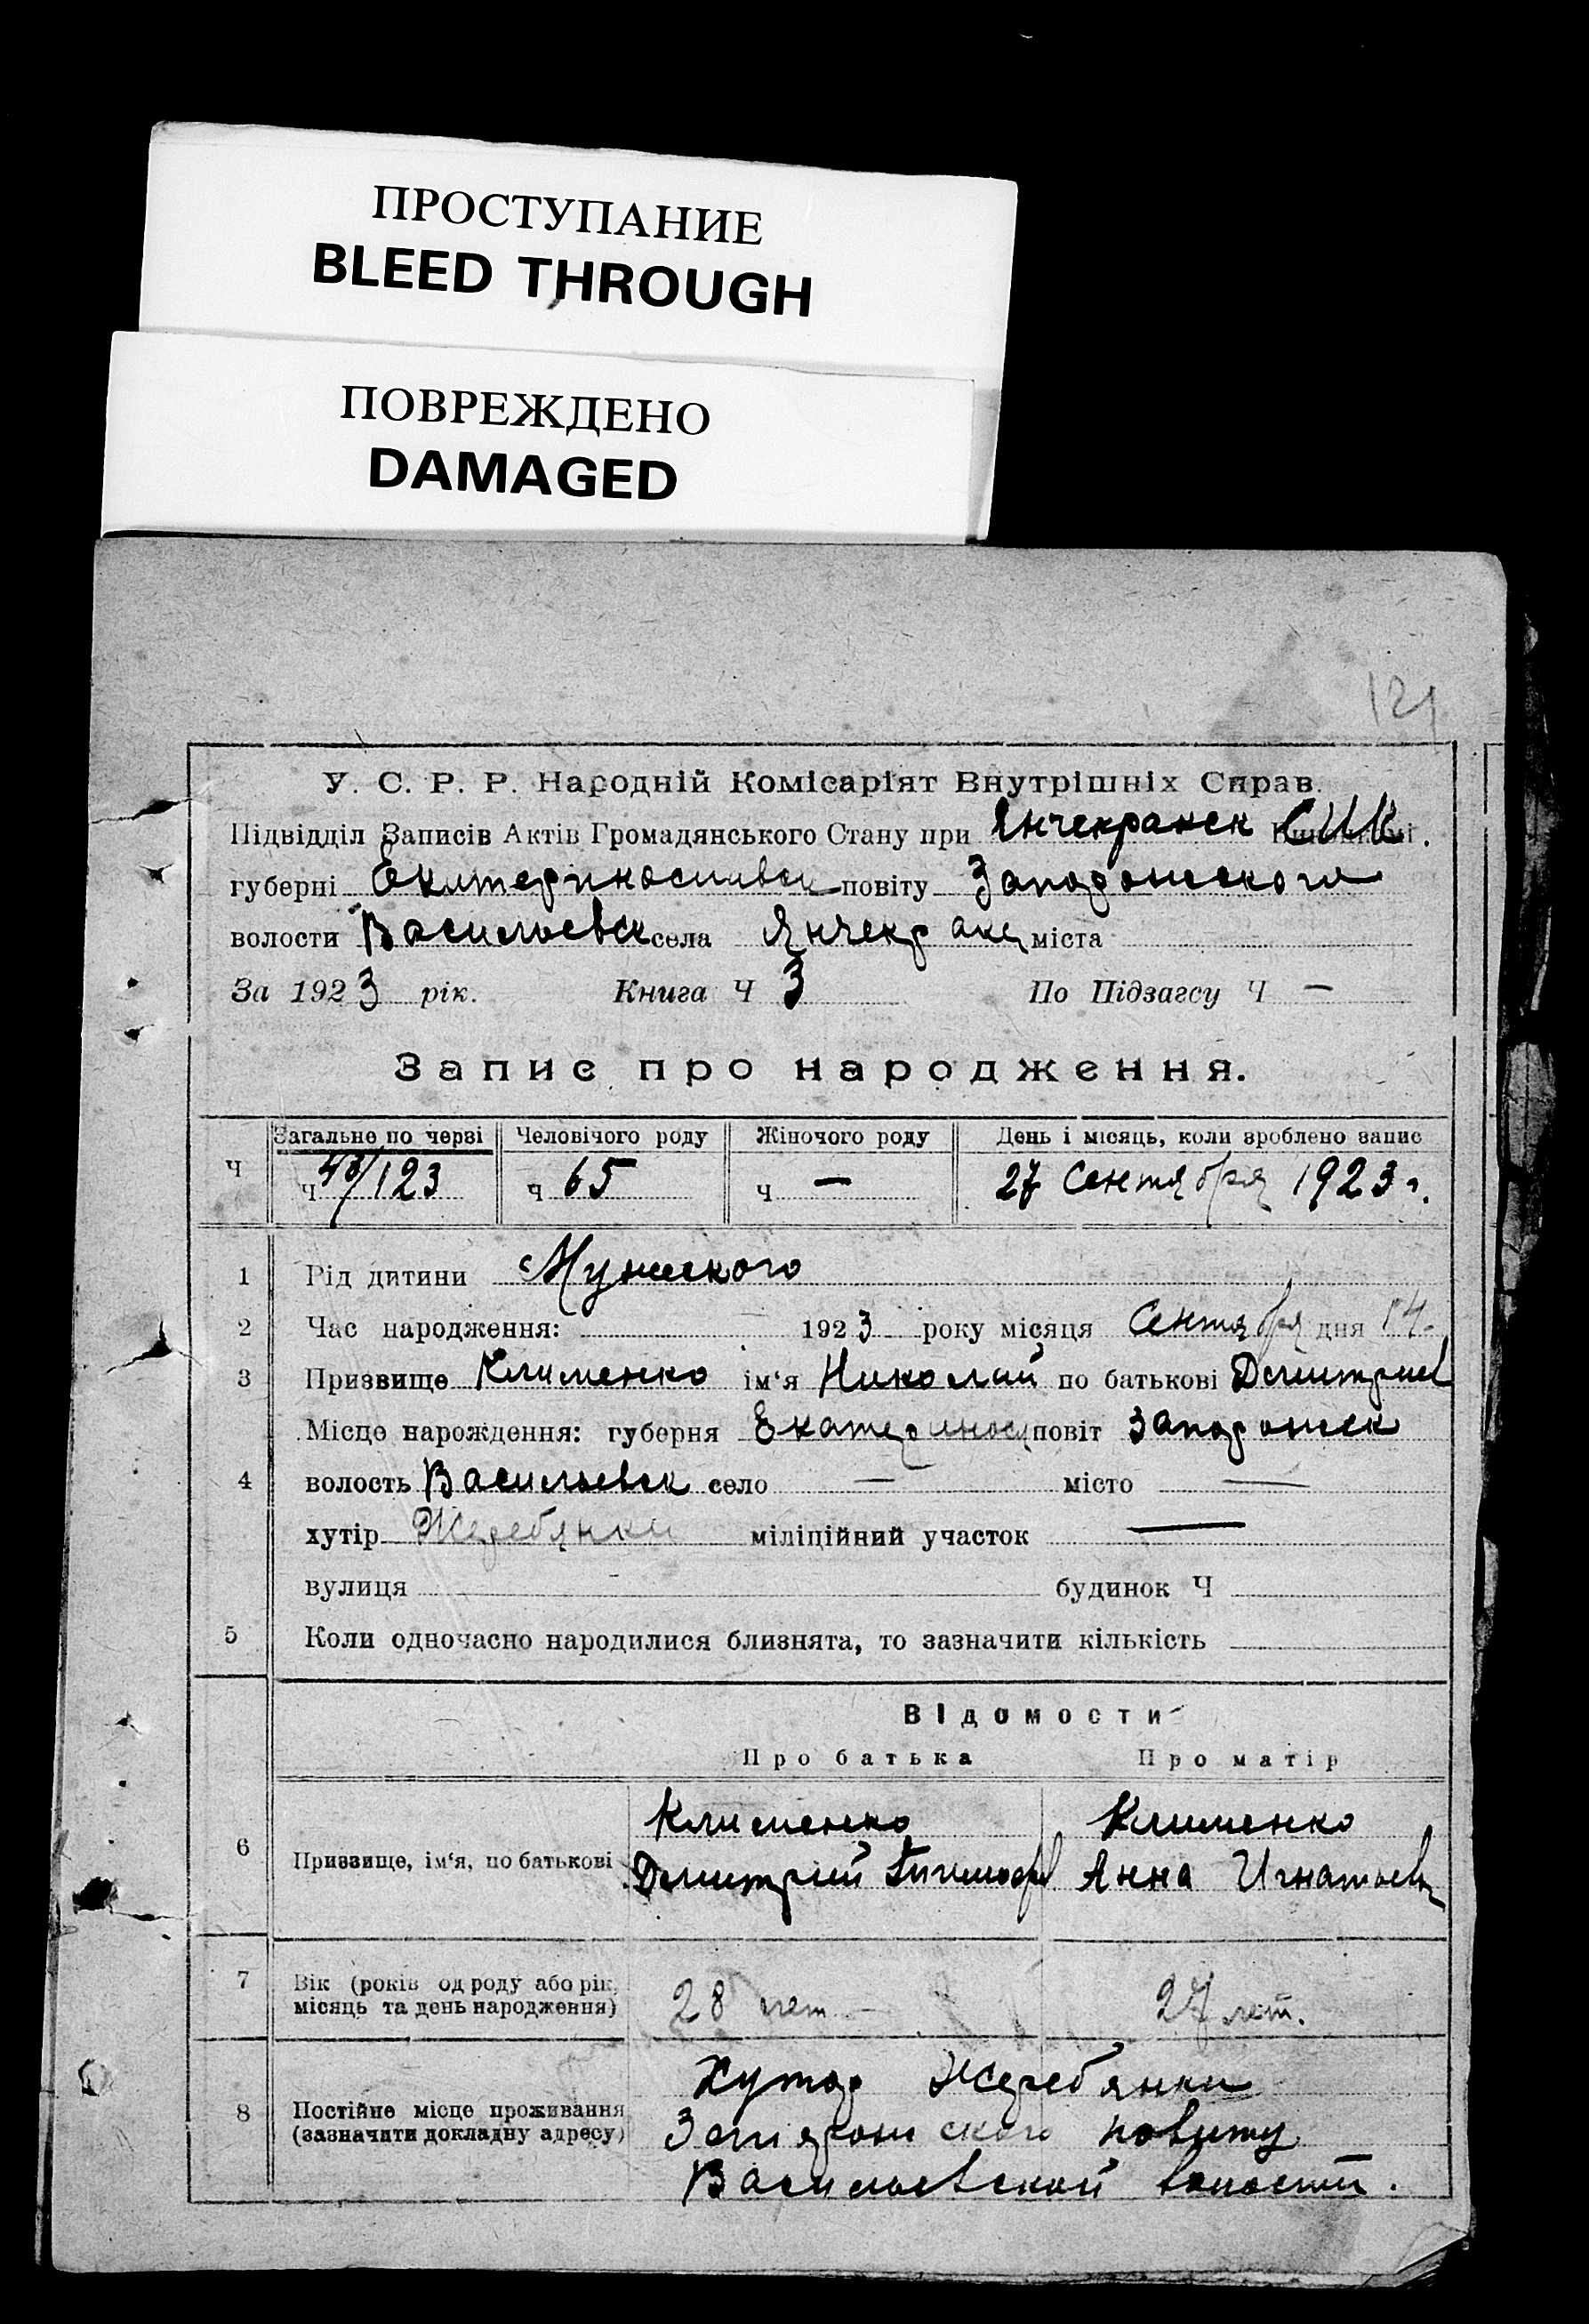 ПРОСТУПАНИЕ
BLEED THROUGH
ПОВРЕЖДЕНО
DAMAGED
121
У. С. Р. Р. Народній Комісаріят Внутрішніх Справ.
Підвідділ Записів Актів Громадянського Стану при Янчекракск
губерні повіту
волости Васильевск села Янчекрак міста
За 1923 рік. Книга Ч 3 По Підзагсу Ч —
Запис про народження.
Загальне по черзі Человічого роду Жіночого роду День і місяць, коли зроблено запис
Ч ч /123 ч 65 ч — 27 Сентября 1923 г.
1 Рід дитини Мужского
2 Час народження: 1923 року місяця Сентября дня 14.
3 Призвище Клименко ім'я Николай по батькові Дмитриев
Місце нарождення: губерня Екатеринос повіт Запорожск
4 волость Васильевск село — місто —
хутір Жеребянки міліційний участок —
вулиця будинок Ч
5 Коли одночасно народилися близнята, то зазначити кількість
Відомости
Про батька Про матір
Клименко Клименко
6 Призвище, ім'я, по батькові Дмитрий Тимоф Анна Игнатьев
7 Вік (років од роду або рік,
місяць та день народження) 28 лет 27 лет.
Хутор Жеребянки
8 Постійне місце проживання
(зазначити докладну адресу) Запорожского повиту
Васильевской волости.